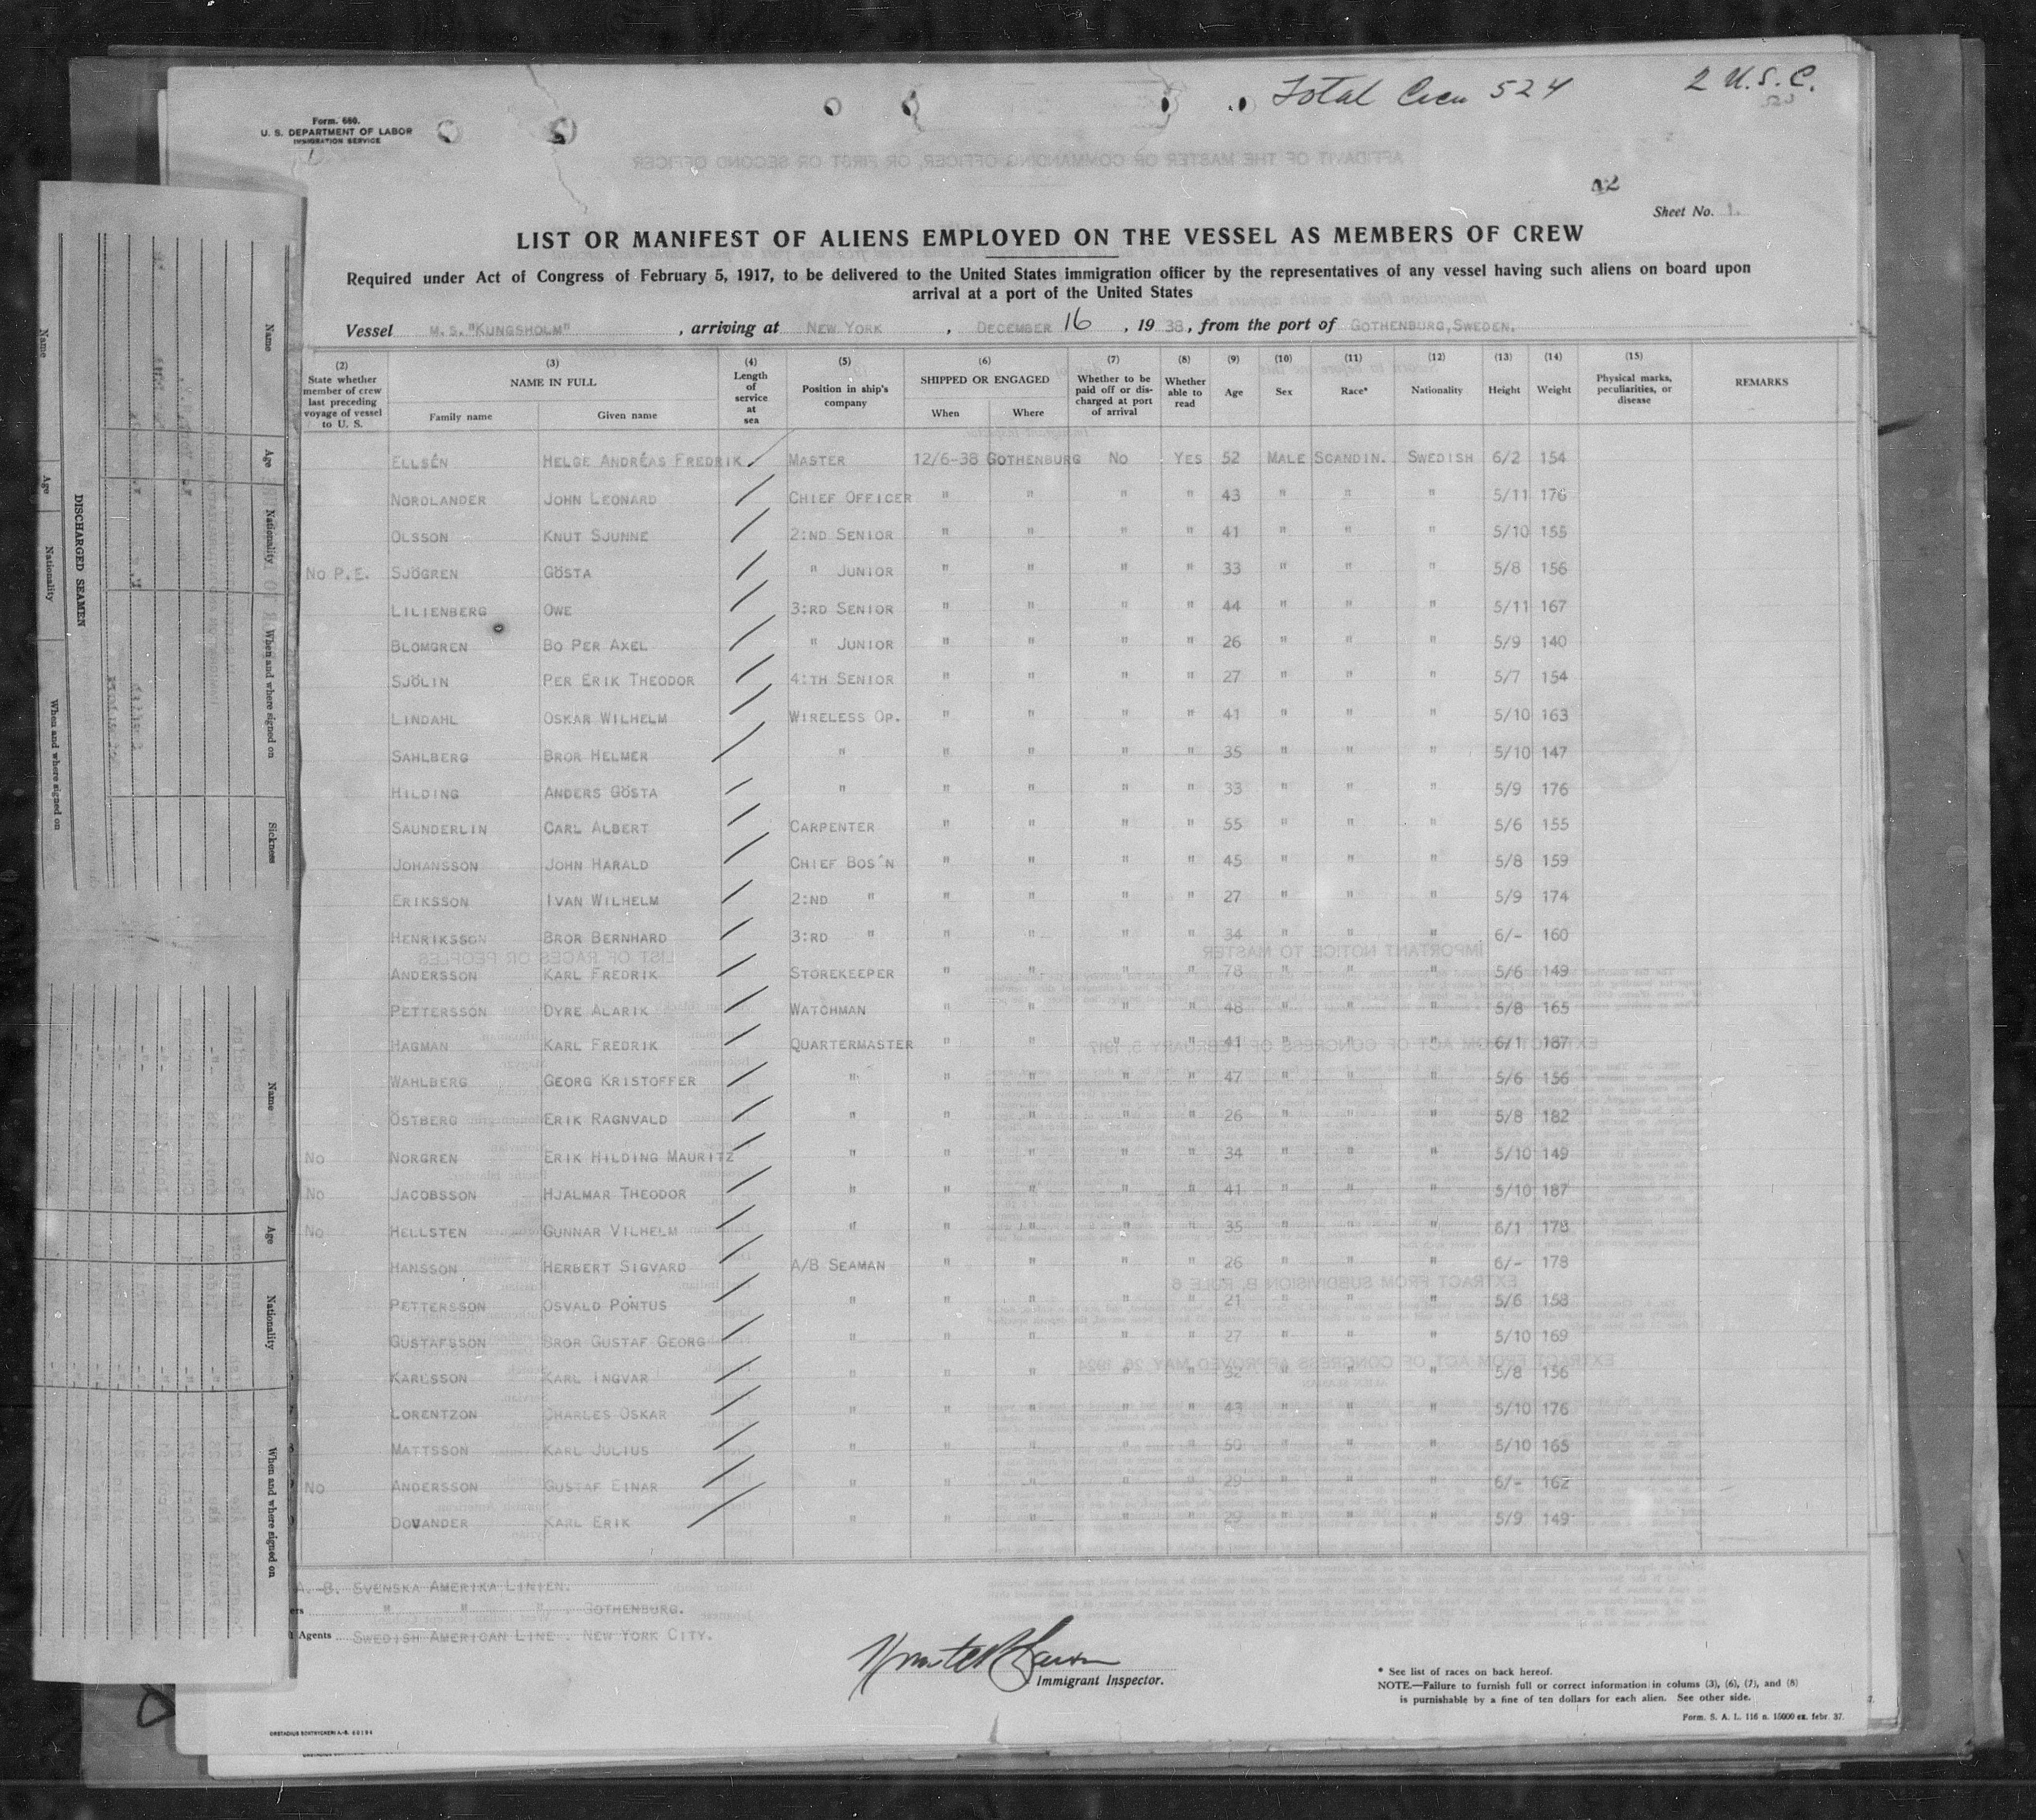 Total Crew 524
2 U.S.C.
Form. 680.
U. S. DEPARTMENT OF LABOR
IMMIGRATION SERVICE
Sheet No. 1.
LIST OR MANIFEST OF ALIENS EMPLOYED ON THE VESSEL AS MEMBERS OF CREW
Required under Act of Congress of February 5, 1917, to be delivered to the United States immigration officer by the representatives of any vessel having such aliens on board upon
arrival at a port of the United States
Vessel M.S. "KUNGSHOLM", arriving at NEW YORK, DECEMBER 16, 1938, from the port of GOTHENBURG, SWEDEN.
(2) State whether member of crew last preceding voyage of vessel to U. S.
(3) NAME IN FULL Family name Given name
(4) Length of service at sea
(5) Position in ship's company
(6) SHIPPED OR ENGAGED When Where
(7) Whether to be paid off or discharged at port of arrival
(8) Whether able to read
(9) Age
(10) Sex
(11) Race*
(12) Nationality
(13) Height
(14) Weight
(15) Physical marks, peculiarities, or disease
REMARKS
ELLSÉN HELGE ANDRÉAS FREDRIK MASTER 12/6-38 GOTHENBURG NO YES 52 MALE SCANDIN. SWEDISH 6/2 154
NORDLANDER JOHN LEONARD CHIEF OFFICER " " " " 43 " " " 5/11 176
OLSSON KNUT SJUNNE 2:ND SENIOR " " " " 41 " " " 5/10 155
NO P.E. SJÖGREN GÖSTA " JUNIOR " " " " 33 " " " 5/8 156
LILIENBERG OWE 3:RD SENIOR " " " " 44 " " " 5/11 167
BLOMGREN BO PER AXEL " JUNIOR " " " " 26 " " " 5/9 140
SJÖLIN PER ERIK THEODOR 4:TH SENIOR " " " " 27 " " " 5/7 154
LINDAHL OSKAR WILHELM WIRELESS OP. " " " " 41 " " " 5/10 163
SAHLBERG BROR HELMER " " " " " 35 " " " 5/10 147
HILDING ANDERS GÖSTA " " " " " 33 " " " 5/9 176
SAUNDERLIN CARL ALBERT CARPENTER " " " " 55 " " " 5/6 155
JOHANSSON JOHN HARALD CHIEF BOS'N " " " " 45 " " " 5/8 159
ERIKSSON IVAN WILHELM 2:ND " " " " " 27 " " " 5/9 174
HENRIKSSON BROR BERNHARD 3:RD " " " " " 34 " " " 6/- 160
ANDERSSON KARL FREDRIK STOREKEEPER " " " " 78 " " " 5/6 149
PETTERSSON DYRE ALARIK WATCHMAN " " " " 48 " " " 5/8 165
HAGMAN KARL FREDRIK QUARTERMASTER " " " " 41 " " " 6/1 187
WAHLBERG GEORG KRISTOFFER " " " " " 47 " " " 5/6 156
ÖSTBERG ERIK RAGNVALD " " " " " 26 " " " 5/8 182
NO NORGREN ERIK HILDING MAURITZ " " " " " 34 " " " 5/10 149
NO JACOBSSON HJALMAR THEODOR " " " " " 41 " " " 5/10 187
NO HELLSTEN GUNNAR VILHELM " " " " " 35 " " " 6/1 178
HANSSON HERBERT SIGVARD A/B SEAMAN " " " " 26 " " " 6/- 178
PETTERSSON OSVALD PONTUS " " " " " 21 " " " 5/6 158
GUSTAFSSON BROR GUSTAF GEORG " " " " " 27 " " " 5/10 169
KARLSSON KARL INGVAR " " " " " 32 " " " 5/8 156
LORENTZON CHARLES OSKAR " " " " " 43 " " " 5/10 176
MATTSSON KARL JULIUS " " " " " 50 " " " 5/10 165
NO ANDERSSON GUSTAF EINAR " " " " " 29 " " " 6/- 162
DOVANDER KARL ERIK " " " " " 29 " " " 5/9 149
A.-B. SVENSKA AMERIKA LINIEN.
" " " . GOTHENBURG.
Agents SWEDISH AMERICAN LINE. NEW YORK CITY.
Immigrant Inspector.
* See list of races on back hereof.
NOTE.—Failure to furnish full or correct information in colums (3), (6), (7), and (8)
is punishable by a fine of ten dollars for each alien. See other side.
Form. S. A. L. 116 n. 15000 ex. febr. 37.
DISCHARGED SEAMEN
Name Age Nationality When and where signed on
Name Age Nationality When and where signed on Sickness
Name Age Nationality When and where signed on